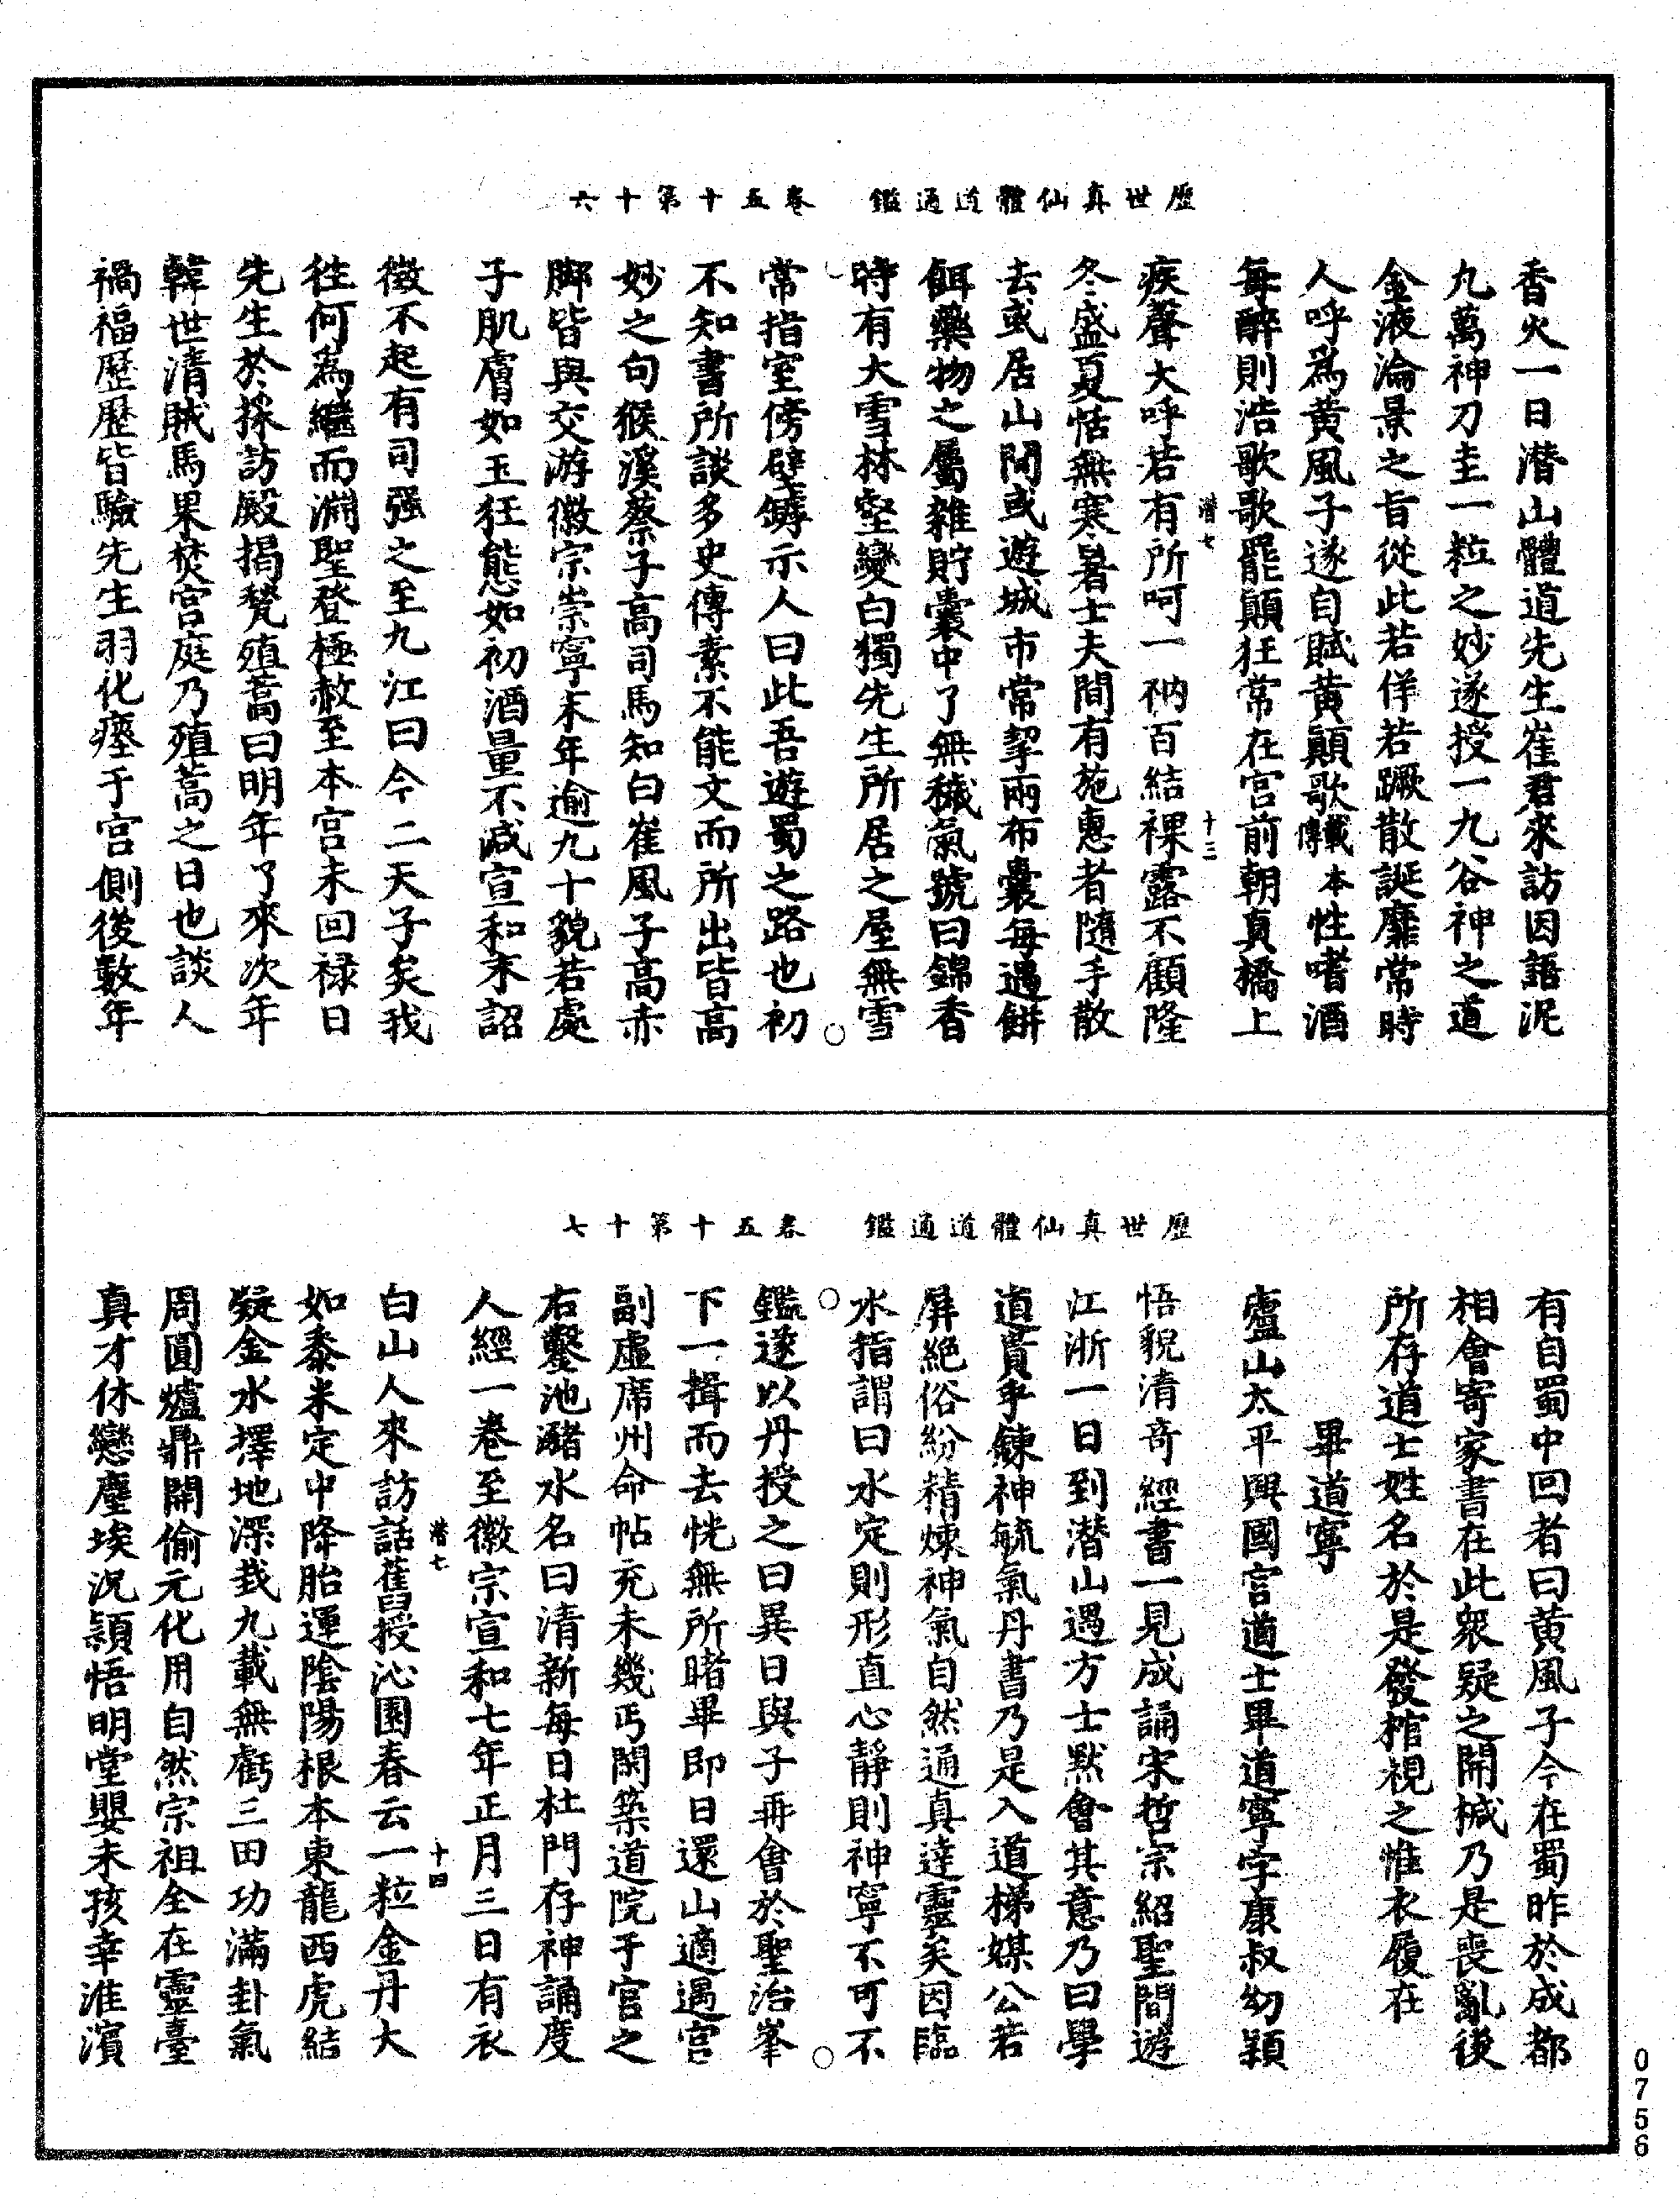 歷世真仙體道通鑑　卷五十第十六
香火一日潛山體道先生崔君來訪因語泥
九萬神刀圭一粒之妙遂授一九谷神之道
金液淪景之旨從此若佯若蹶散誕靡常時
人呼爲黃風子遂自賦黃顛歌載本傳性嗜酒
每醉則浩歌歌罷顛狂常在宮前朝真橋上
疾聲大呼若有所呵一衲百結裸露不顧隆
潛七
十三
冬盛夏恬無寒暑士夫間有施惠者隨手散
去或居山間或遊城市常挈兩布囊每遇餅
餌藥物之屬雜貯囊中了無穢氣號曰錦香
時有大雪林壑變白獨先生所居之屋無雪
常指室傍壁罅示人曰此吾遊蜀之路也初
不知書所談多史傳素不能文而所出皆高
妙之句猴溪蔡子高司馬知白崔風子高赤
脚皆與交游徽宗崇寧末年逾九十貌若處
子肌膚如玉狂態如初酒量不減宣和末詔
徵不起有司强之至九江曰今二天子矣我
往何為繼而淵聖登極赦至本宮未回祿日
先生於採訪殿揭甃殖蒿曰明年了來次年
韓世清賊馬果焚宮庭乃殖蒿之日也談人
禍福歷歷皆驗先生羽化瘞于宮側後數年
歷世真仙體道通鑑　卷五十第十七
有自蜀中回者曰黃風子今在蜀昨於成都
相會寄家書在此衆疑之開械乃是喪亂後
所存道士姓名於是發棺視之惟衣履在
畢道寧
廬山太平興國宮道士畢道寧字康叔幼穎
悟貌清奇經書一見成誦宋哲宗紹聖間遊
江浙一日到潛山遇方士默會其意乃曰學
道貫乎鍊神毓氣丹書乃是入道梯媒公若
屏絕俗紛精煉神氣自然通真達靈矣因臨
水指謂曰水定則形直心靜則神寧不可不
鑑遂以丹授之曰異日與子再會於聖治峯
下一揖而去恍無所睹畢即日還山適遇宮
副虛席州命帖充未幾丐閑築道院于宮之
右鑿池瀦水名曰清新每日杜門存神誦度
人經一卷至徽宗宣和七年正月三日有衣
潛七
十四
白山人來訪話舊授沁園春云一粒金丹大
如黍米定中降胎運陰陽根本東龍西虎結
凝金水擇地深栽九載無虧三田功滿卦氣
周圓爐鼎開偷元化用自然宗祖全在靈臺
真才休戀塵埃況穎悟明堂嬰未孩幸淮濱
0756